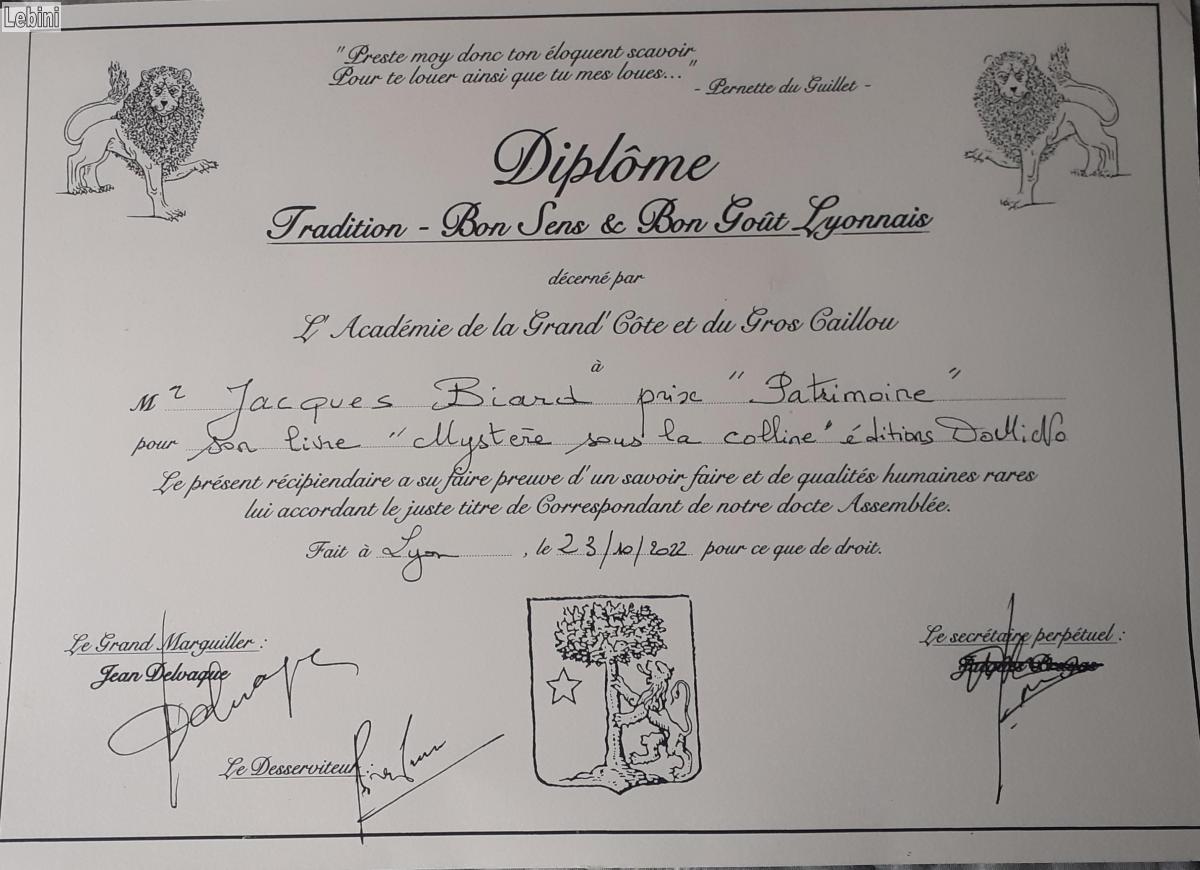 Lebini
"Preste moy donc ton éloquent scavoir
Pour te louer ainsi que tu mes loues..."
- Pernette du Guillet -
Diplôme
Tradition - Bon Sens & Bon Goût Lyonnais
décerné par
L'Académie de la Grand'Côte et du Gros Caillou
à
Mr Jacques Biard prix "Patrimoine"
pour son livre "Mystère sous la colline" éditions DoMiNo
Le présent récipiendaire a su faire preuve d'un savoir faire et de qualités humaines rares
lui accordant le juste titre de Correspondant de notre docte Assemblée.
Fait à Lyon, le 23/10/2022 pour ce que de droit.
Le Grand Marguiller :
Jean Delvaque
Delvaque
Le Desserviteur :
Le secrétaire perpétuel :